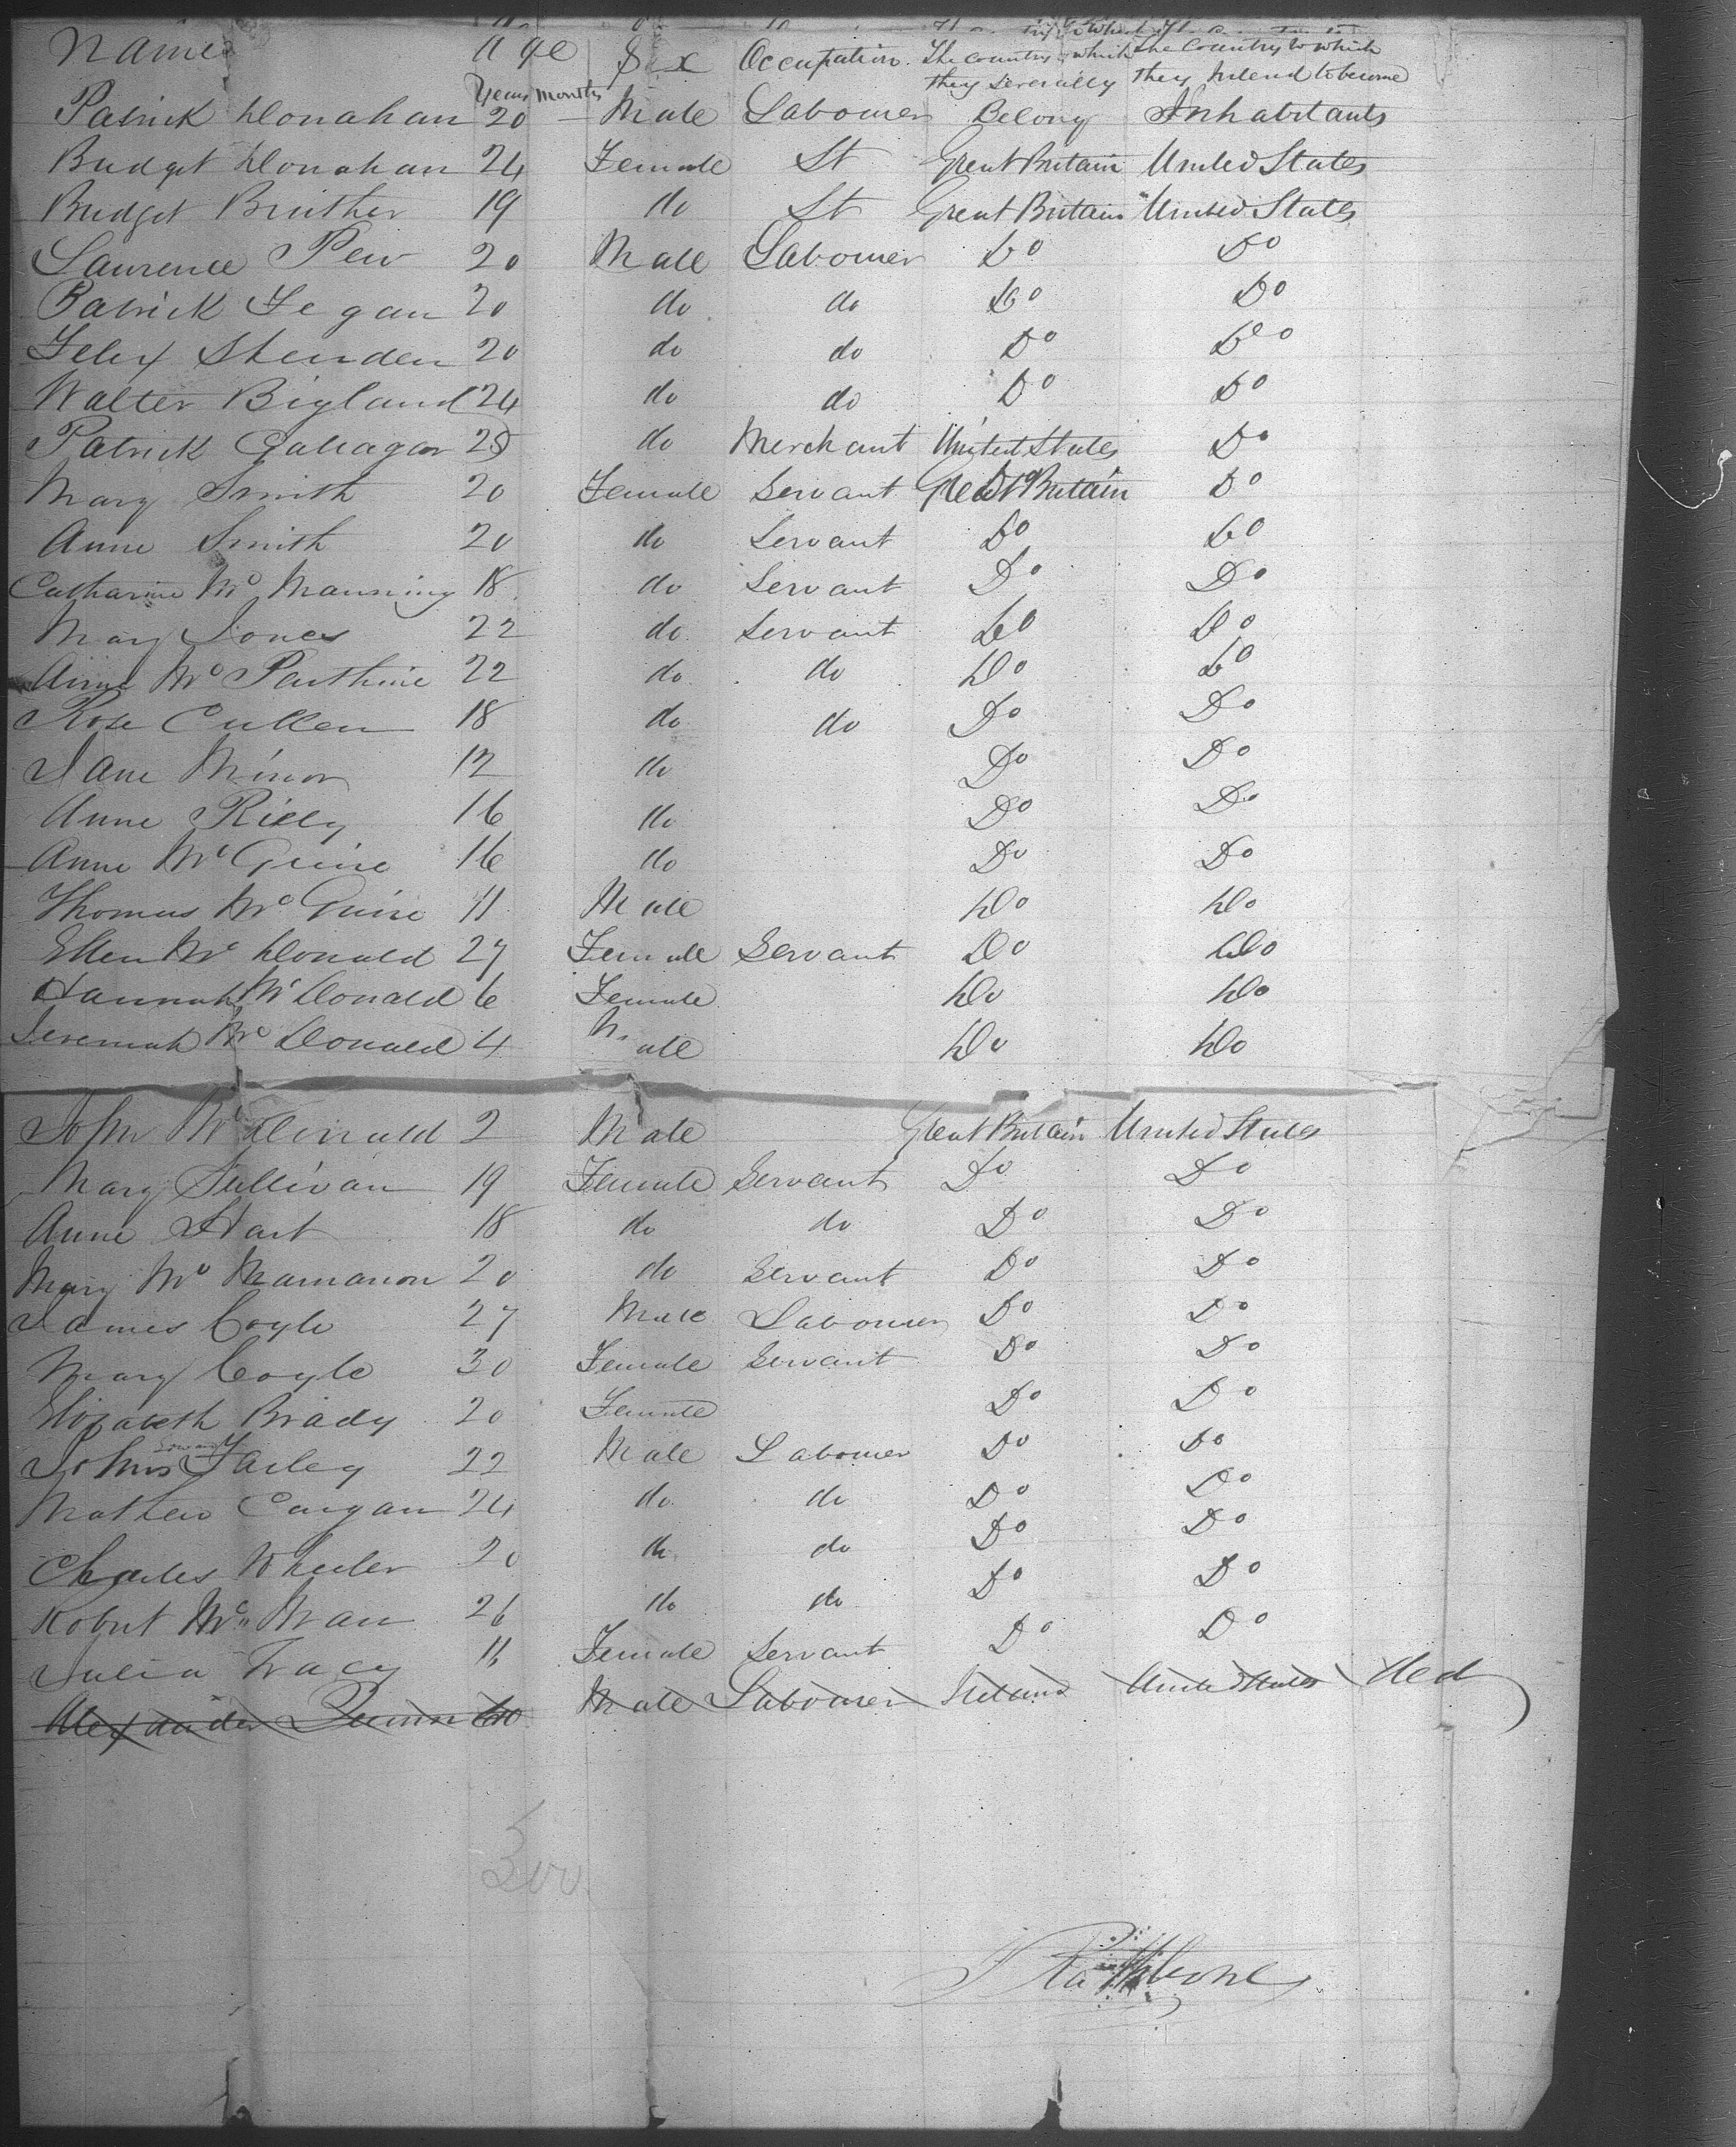 Names Age Sex Occupation. The Country to which they severally The Country to which they Intend to become
Years Months
Patrick Donahan 20 — Male Labourer Belong Inhabitants
Bridget Donahan 24 Female St Great Britain United States
Bridget Bruther 19 do St Great Britain United States
Laurence Pew 20 Male Labourer Do Do
Patrick Fegan 20 do do Do Do
Felix Sheriden 20 do do Do Do
Walter Bigland 24 do do Do Do
Patrick Galiagar 25 do Merchant United States Do
Mary Smith 20 Female Servant Great Britain Do
Anne Smith 20 do Servant Do Do
Catharine Mc Manning 18 do Servant Do Do
Mary Jones 22 do Servant Do Do
Anne Mc Parthine 22 do do Do Do
Rose Cullen 18 do do Do Do
Jane Minor 12 do Do Do
Anne Rielly 16 do Do Do
Anne Mc Guire 16 do Do Do
Thomas Mc Guire 11 Male Do Do
Ellen Mc Donald 27 Female Servant Do Do
Hannah Mc Donald 6 Female Do Do
Jeremiah Mc Donald 4 Male Do Do
John Mc Donald 2 Male Great Britain United States
Mary Sullivan 19 Female Servant Do Do
Anne Hart 18 do do Do Do
Mary Mc Mamanon 20 do Servant Do Do
James Coyle 27 Male Labourer Do Do
Mary Coyle 30 Female Servant Do Do
Elizabeth Brady 20 Female Do Do
Edward
John Farley 22 Male Labourer Do Do
Mathew Cargan 24 do do Do Do
Charles Wheeler 20 do do Do Do
Robert Mc Man 26 do do Do Do
Julia Tracy 16 Female Servant Do Do
Alexander Quinn 60 Male Labourer Ireland United States ded
J Rathbone